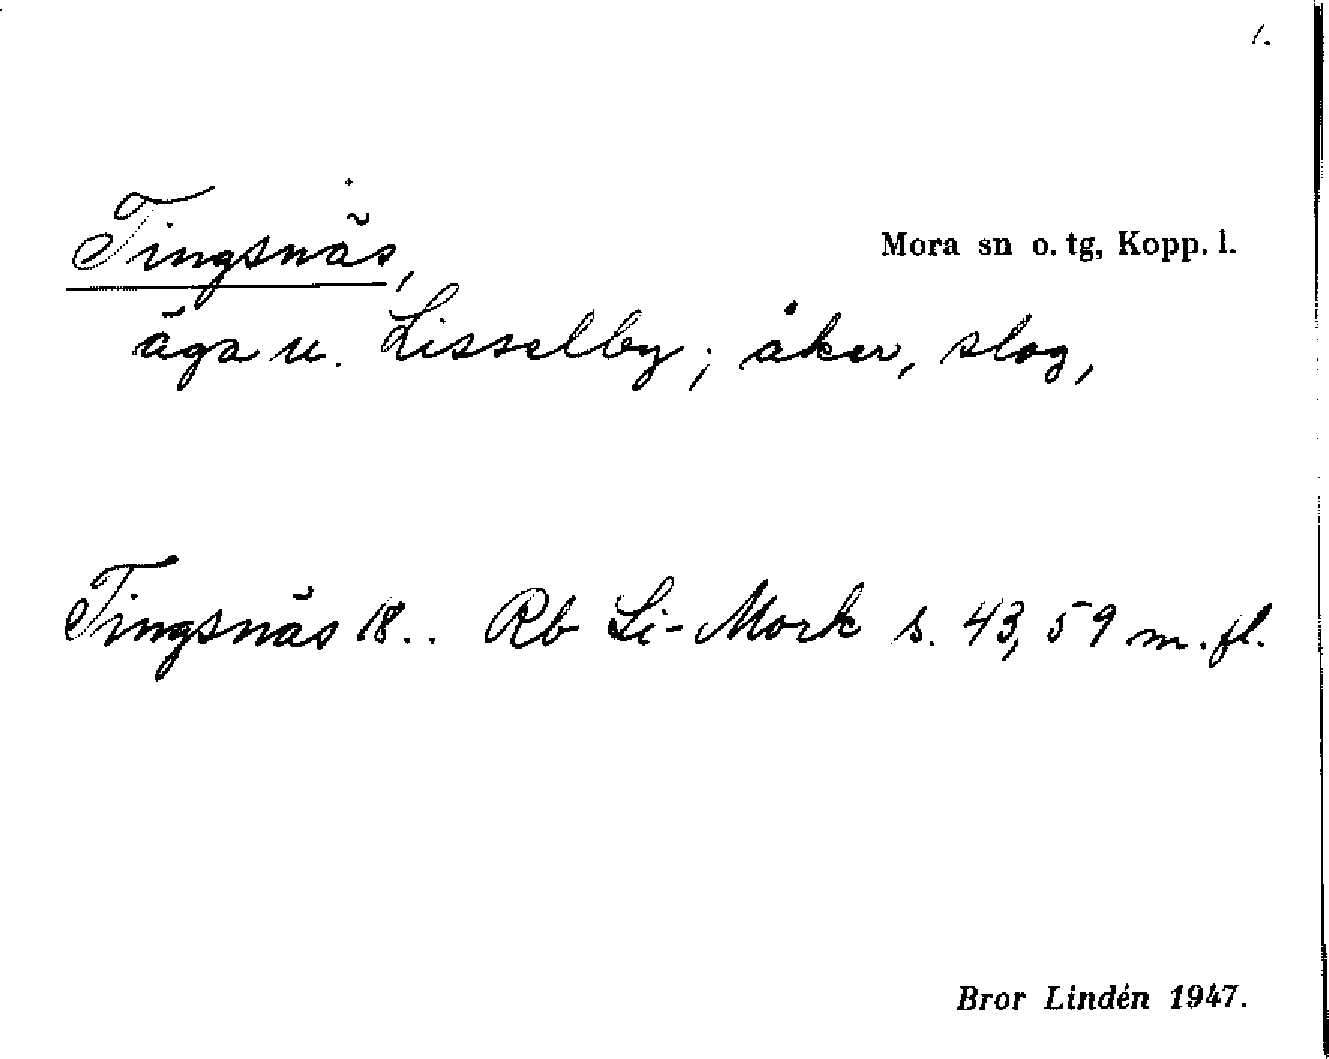 1.
Tingsnäs, Mora sn o. tg, Kopp. l.
äga u. Lisselby; åker, slog,
Tingsnäs 18.. Rb Li-Mork s. 43, 59 m. fl.
Bror Lindén 1947.